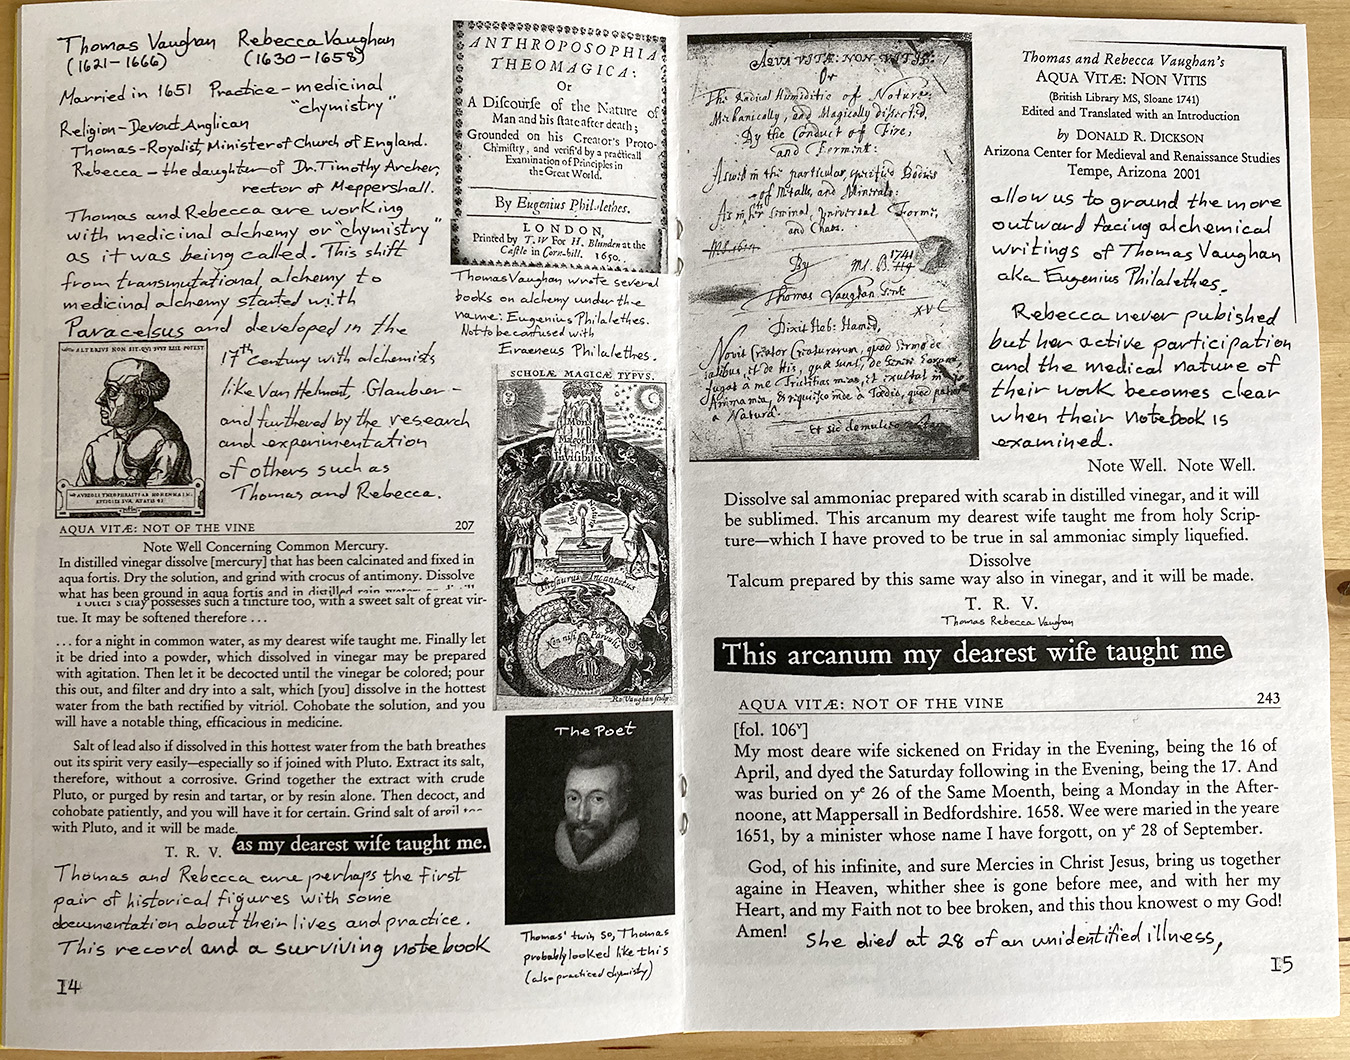 Thomas Vaughan Rebecca Vaughan
(1621-1666) (1630-1658)
Married in 1651 Practice-medicinal
"chymistry"
Religion-Devout Anglican
Thomas-Royalist, Minister of Church of England.
Rebecca - the daughter of Dr. Timothy Archer,
rector of Meppershall.
Thomas and Rebecca are working
with medicinal alchemy or "chymistry"
as it was being called. This shift
from transmutational alchemy to
medicinal alchemy started with
Paracelsus and developed in the
17th century with alchemists
like Van Helmont, Glauber-
and furthered by the research
and experimentation
of others such as
Thomas and Rebecca.
ALTERIVS NON SIT, QVI SVVS ESSE POTEST
AQUA VITÆ: NOT OF THE VINE 207
Note Well Concerning Common Mercury.
In distilled vinegar dissolve [mercury] that has been calcinated and fixed in
aqua fortis. Dry the solution, and grind with crocus of antimony. Dissolve
what has been ground in aqua fortis and in distilled rain water
Potter's clay possesses such a tincture too, with a sweet salt of great vir-
tue. It may be softened therefore ...
... for a night in common water, as my dearest wife taught me. Finally let
it be dried into a powder, which dissolved in vinegar may be prepared
with agitation. Then let it be decocted until the vinegar be colored; pour
this out, and filter and dry into a salt, which [you] dissolve in the hottest
water from the bath rectified by vitriol. Cohobate the solution, and you
will have a notable thing, efficacious in medicine.
Salt of lead also if dissolved in this hottest water from the bath breathes
out its spirit very easily—especially so if joined with Pluto. Extract its salt,
therefore, without a corrosive. Grind together the extract with crude
Pluto, or purged by resin and tartar, or by resin alone. Then decoct, and
cohobate patiently, and you will have it for certain. Grind salt of
with Pluto, and it will be made.
T. R. V. as my dearest wife taught me.
Thomas and Rebecca are perhaps the first
pair of historical figures with some
documentation about their lives and practice.
This record and a surviving notebook
14
ANTHROPOSOPHIA
THEOMAGICA:
Or
A Discourse of the Nature of
Man and his state after death;
Grounded on his Creator's Proto-
Chimistry, and verifi'd by a practicall
Examination of Principles in
the Great World.
By Eugenius Philalethes.
LONDON,
Printed by T. W For H. Blunden at the
Castle in Corn-hill. 1650.
Thomas Vaughan wrote several
books on alchemy under the
name: Eugenius Philalethes.
Not to be confused with
Eraeneus Philalethes.
SCHOLÆ MAGICÆ TYPVS.
Mons
Magorum
Invisibilis
Thesaurus Incantatus
Non nisi Parvulis
Ro: Vaughan sculp
The Poet
Thomas' twin, so, Thomas
probably looked like this
(also practiced chymistry)
AQUA VITÆ: NON VITIS:
Or
The Radical Humiditie of Nature,
Mechanically, and Magically dissected,
By the Conduct of Fire,
and Ferment:
As well in the particular, specified Bodies
of Metalls, and Minerals:
As in her seminal, universal Forme,
and Chaos.
By
1741
Ms. B. 714
Thomas Vaughan Gent
XVC
Dixit Heb: Hamed,
Novit Creator Creaturarum, quod
fugat a me Tristitias meas, et exultat
Anima mea,
a Natura
Et sic demulceo
Thomas and Rebecca Vaughan's
AQUA VITÆ: NON VITIS
(British Library MS, Sloane 1741)
Edited and Translated with an Introduction
by DONALD R. DICKSON
Arizona Center for Medieval and Renaissance Studies
Tempe, Arizona 2001
allow us to ground the more
outward facing alchemical
writings of Thomas Vaughan
aka Eugenius Philalethes.
Rebecca never pubished
but her active participation
and the medical nature of
their work becomes clear
when their notebook is
examined.
Note Well. Note Well.
Dissolve sal ammoniac prepared with scarab in distilled vinegar, and it will
be sublimed. This arcanum my dearest wife taught me from holy Scrip-
ture—which I have proved to be true in sal ammoniac simply liquefied.
Dissolve
Talcum prepared by this same way also in vinegar, and it will be made.
T. R. V.
Thomas Rebecca Vaughan
This arcanum my dearest wife taught me
AQUA VITÆ: NOT OF THE VINE 243
[fol. 106v]
My most deare wife sickened on Friday in the Evening, being the 16 of
April, and dyed the Saturday following in the Evening, being the 17. And
was buried on ye 26 of the Same Moenth, being a Monday in the After-
noone, att Mappersall in Bedfordshire. 1658. Wee were maried in the yeare
1651, by a minister whose name I have forgott, on ye 28 of September.
God, of his infinite, and sure Mercies in Christ Jesus, bring us together
againe in Heaven, whither shee is gone before mee, and with her my
Heart, and my Faith not to bee broken, and this thou knowest o my God!
Amen! She died at 28 of an unidentified illness,
15